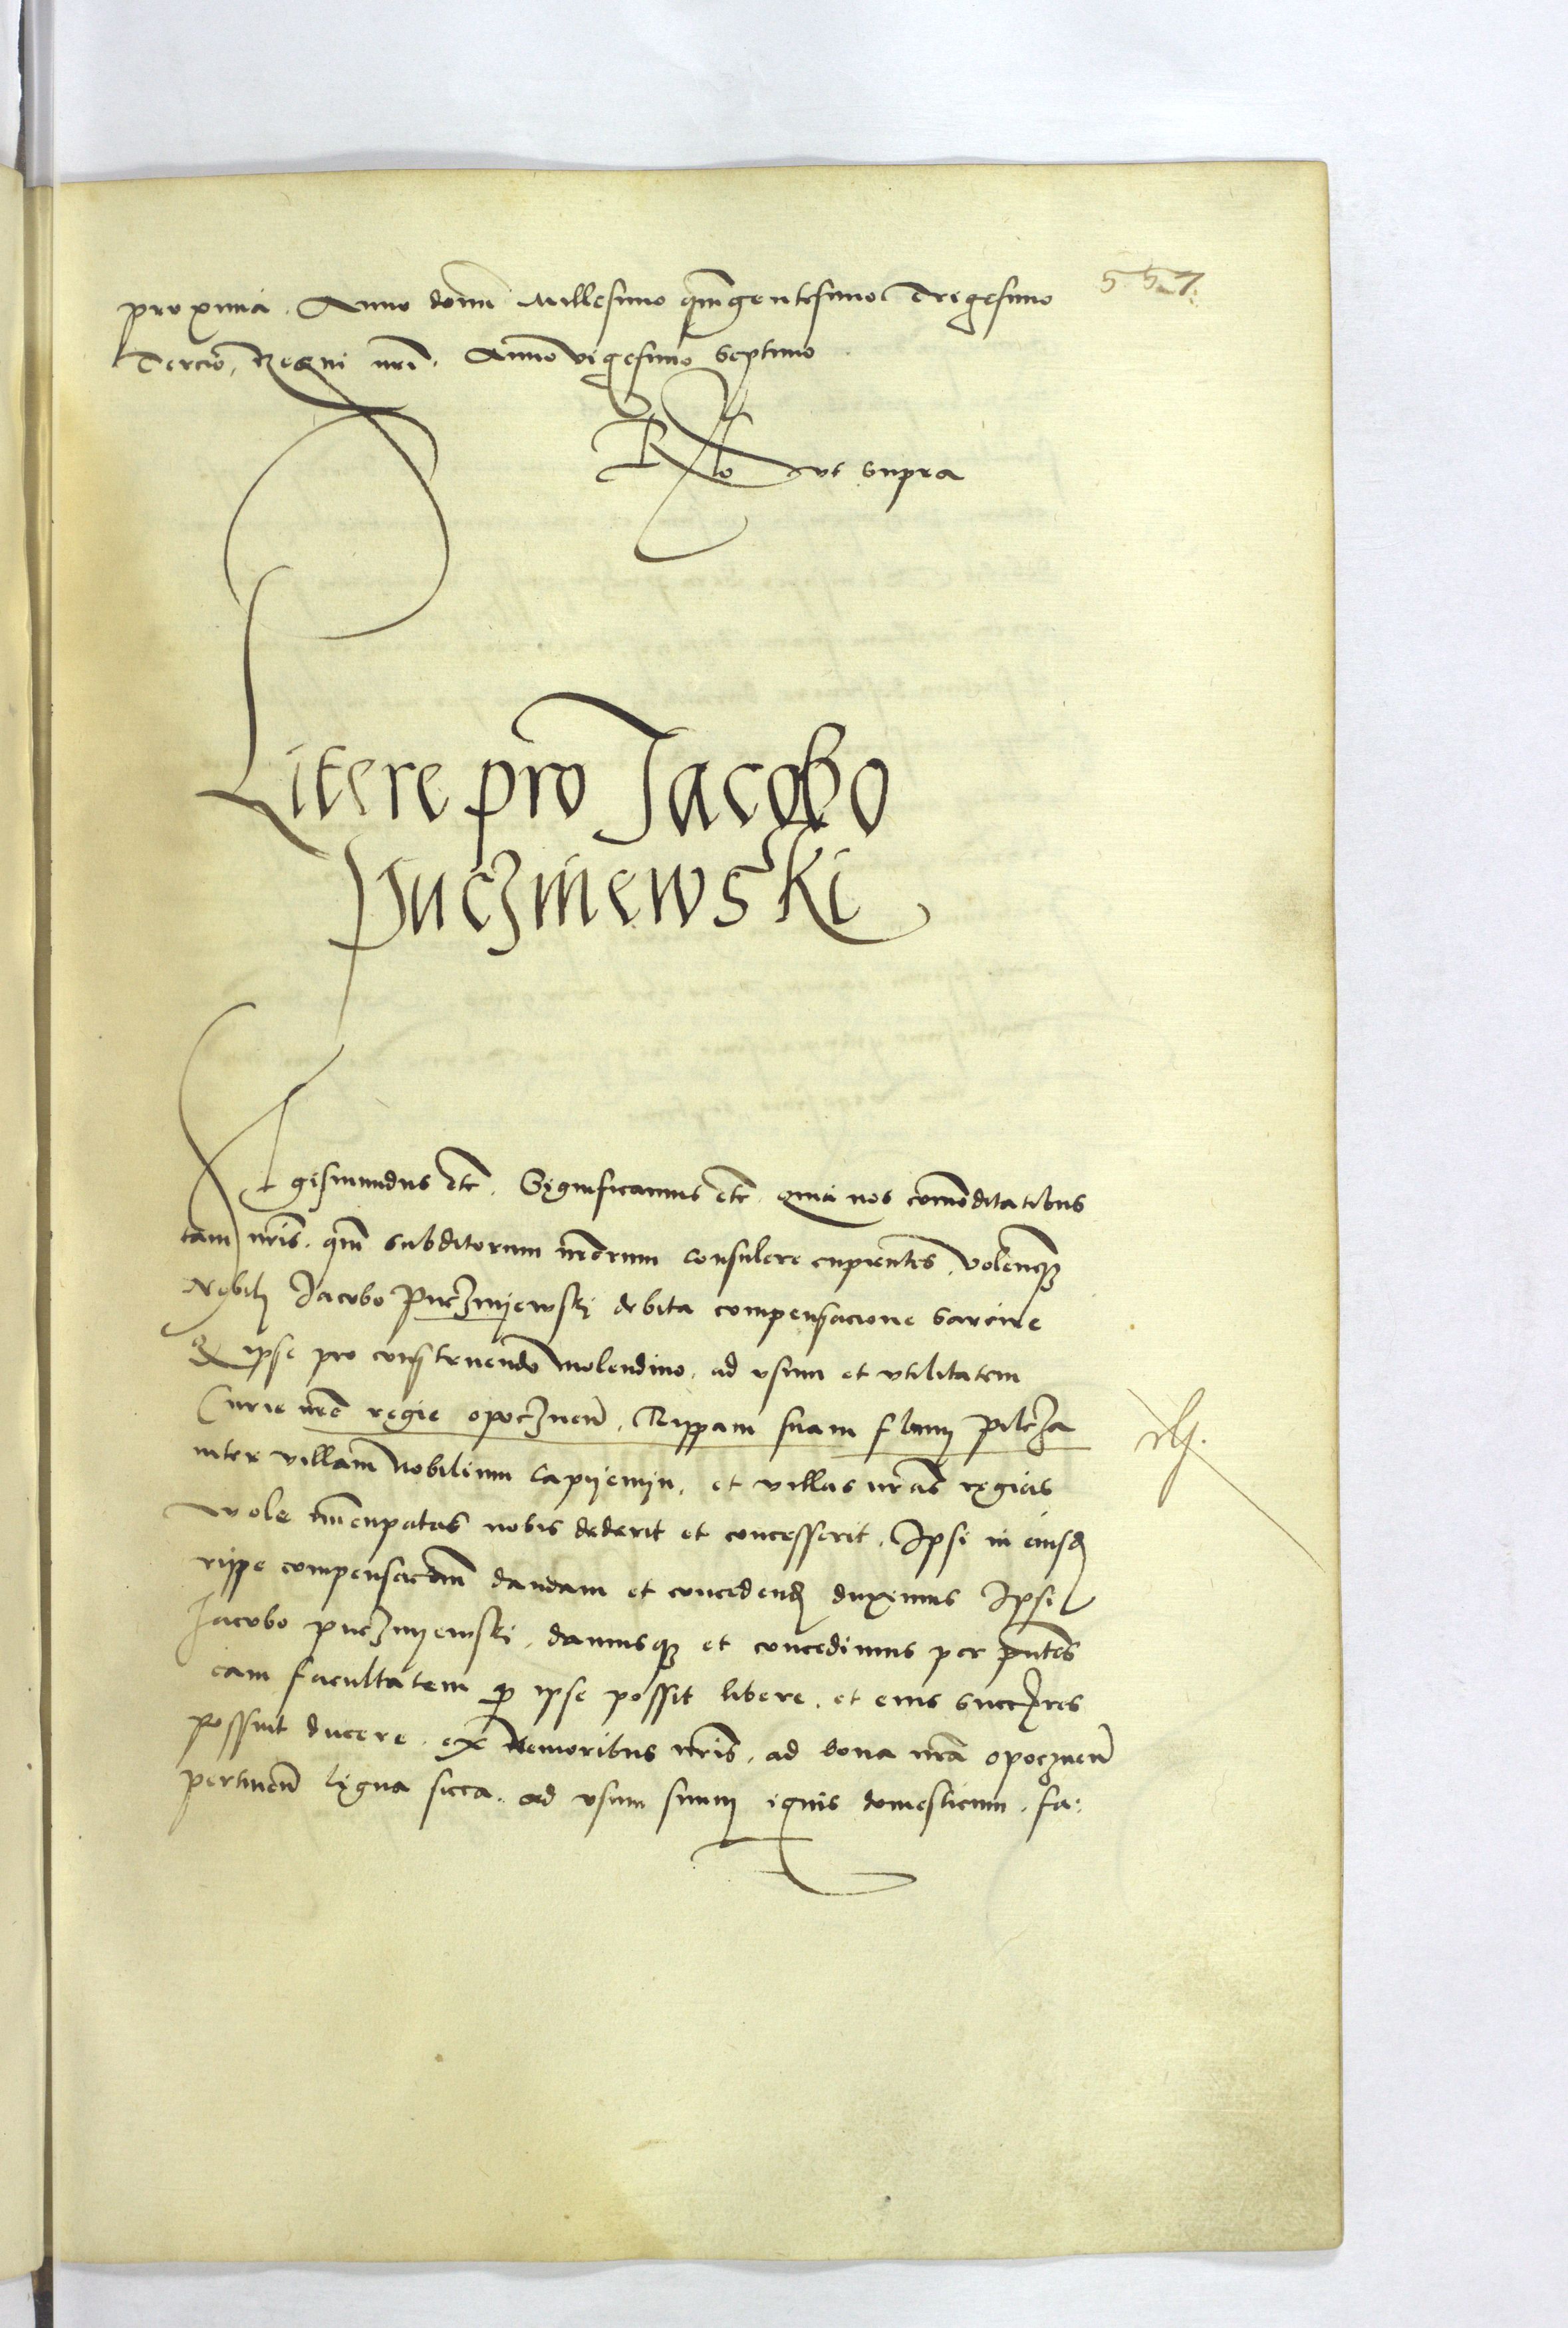 557.
proxima. Anno domī Millesimo qūingentesimo Trigesimo
Tercio, Regni nrī. Anno vigesimo septimo
Rlo ut supra
Litere pro Jacobo
Puczniewski
Sigismundus etc. Significamus etc. quia nos comoditatibus
tam nrīs. qm̄ subditorum nrōrum consulere cupientes, volentesq3
Nobili Jacobo Puczniyewskj debita compensacione sarcire
Q ipse pro construendo molendino. ad usum et utilitatem
Curie nrē regie opocznen̄. Rippam suam flumī pilcza
inter villam nobilium Lapyenyn. et villas nrās regias
Wole nobis dederit et concesserit. Ipsi in eiusd
rippe compensacōnm dandam et concedend duximus Ipsi
Jacobo puczniyewskj. damusq3 et concedimus per pntēs
eam facultatem qd ipse possit libere. et eius succres
possint ducere. ex Nemoribus nrīs. ad bona nrā opocznen̄
pertinen̄ ligna sicca. ad usum suum ignis domesticum. fa: